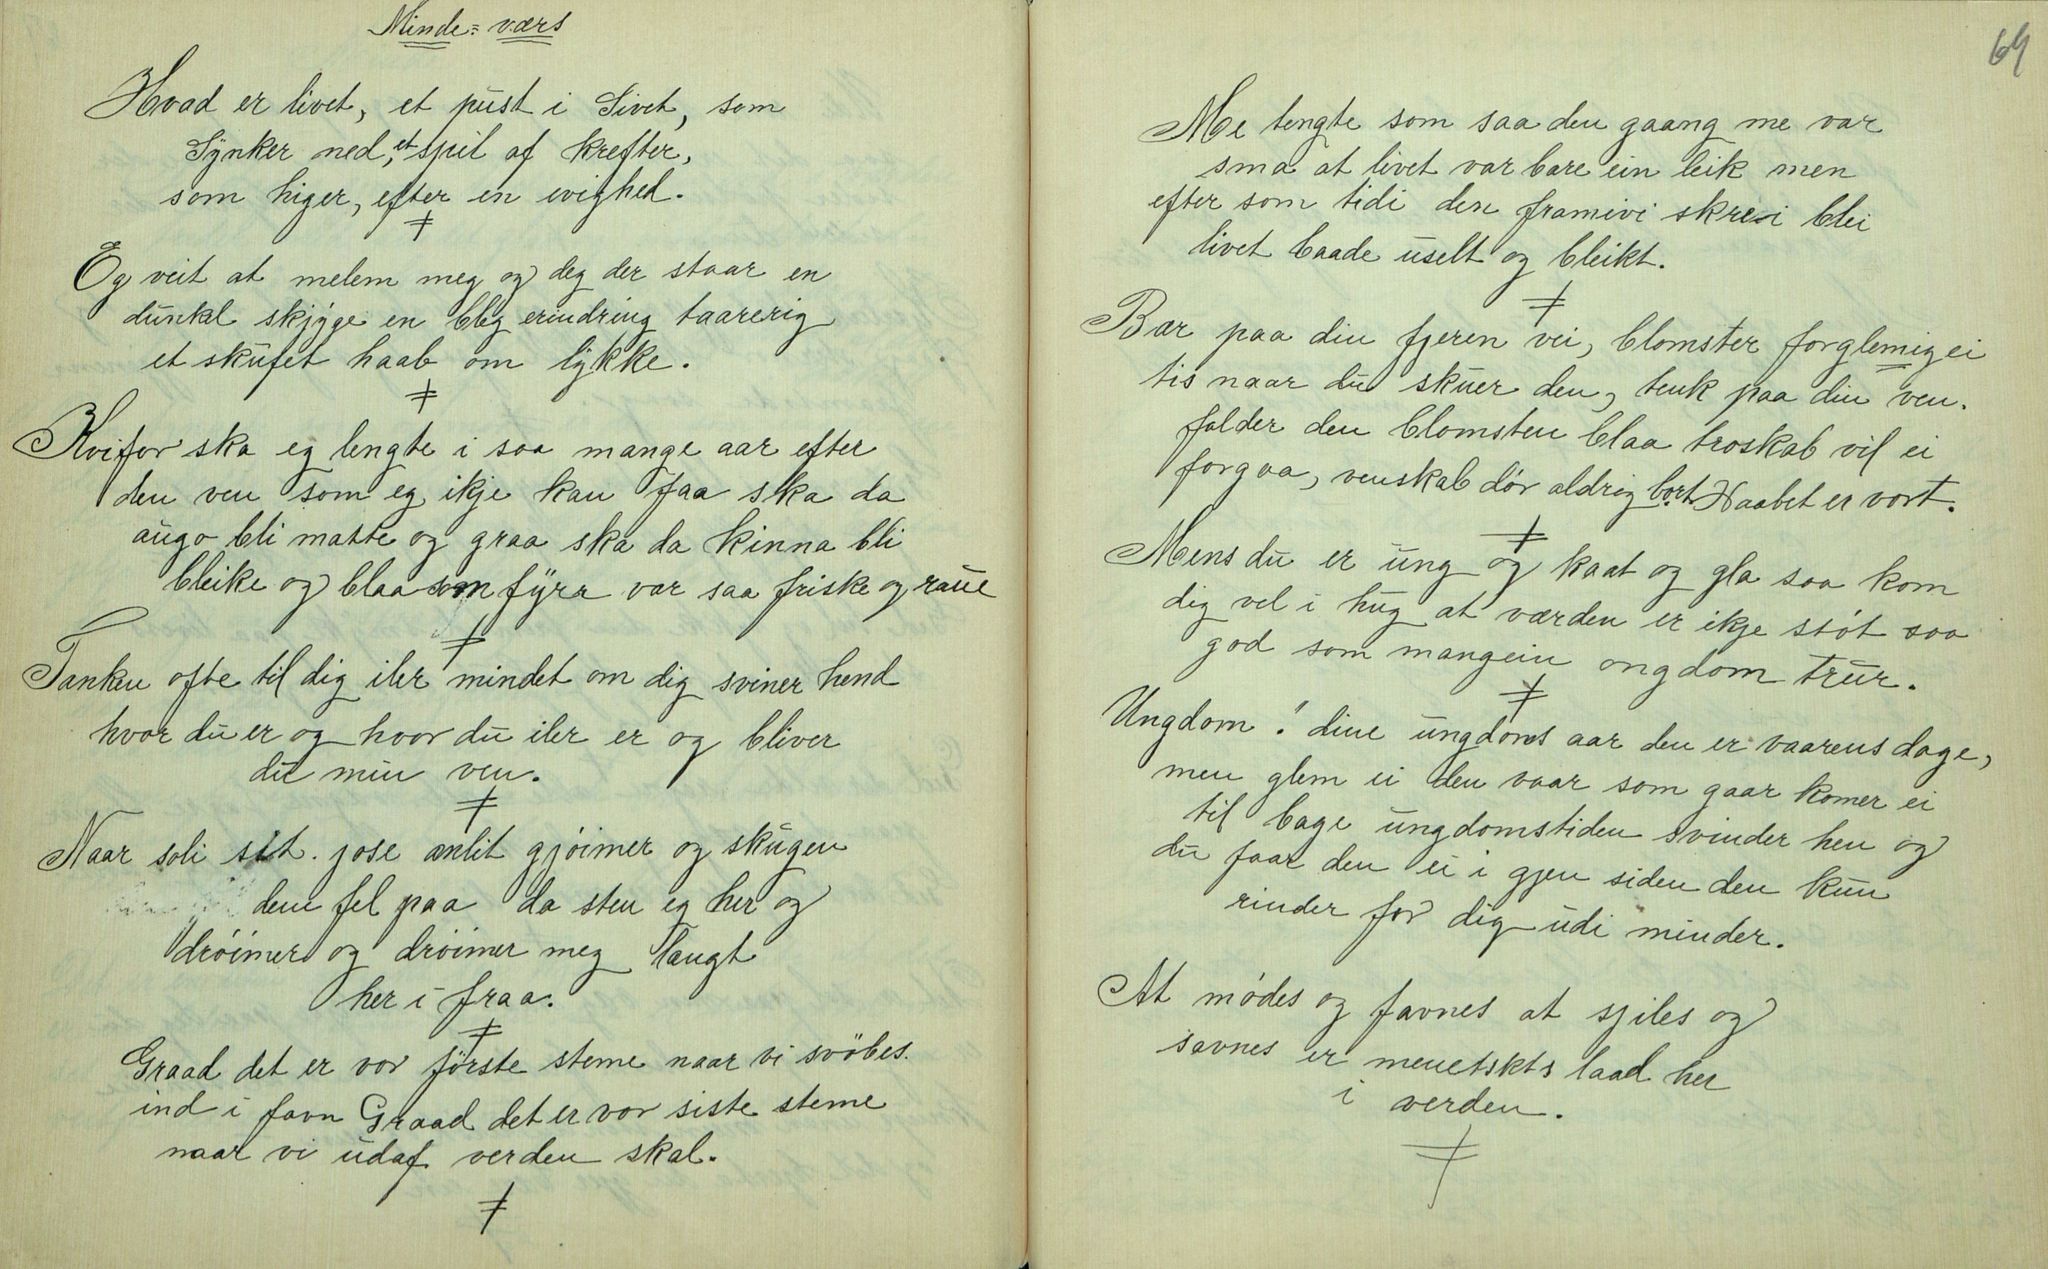 Minde=værs
Hvad er livet, et pust i Sivet, som
Synker ned, et spil af krefter,
som higer, efter en evighed.
Eg veit at melem meg og deg der staar en
dunkel skjyge en bleg erindring taarerig
et skufet haab om lykke.
Kvifor ska eg lengte i saa mange aar efter
den ven som eg ikje kan faa ska da
augo bli matte og graa ska da kinna bli
bleike og blaa som fyrr var saa friske og raue
Tanken ofte til dig iler mindet om dig sviner hend
hvor du er og hvor du iler er og bliver
du min ven.
Naar soli sit. jose anlit gjøimer og skugen
den fel paa da sten eg her og
drøimer og drøimer meg langt
her i fraa.
Graad det er vor første steme naar vi svøbes.
ind i favn Graad det er vor siste steme
naar vi udaf verden skal.
69
Me tengte som saa den gaang me var
sma at livet var bare ein leik men
efter som tidi den framivi skrei blei
livet baade uselt og bleikt.
Bær paa din fjeren vei, blomster forglemigei
tis naar du skuer den, tenk paa din ven.
falder den blomsten blaa troskab vil ei
forgaa, venskab dør aldrig bort Haabet er vort.
Mens du er ung og kaat og gla saa kom
dig vel i hug at værden er ikje støt saa
god som mangein ongdom trur.
Ungdom! dine ungdoms aar den er vaarens dage,
men glem ei den vaar som gaar komer ei
til bage ungdomstiden svinder hen og
du faar den ei i gjen siden den kun
rinder for dig udi minder.
At mødes og favnes at sjiles og
savnes er menetskts laad her
i verden.